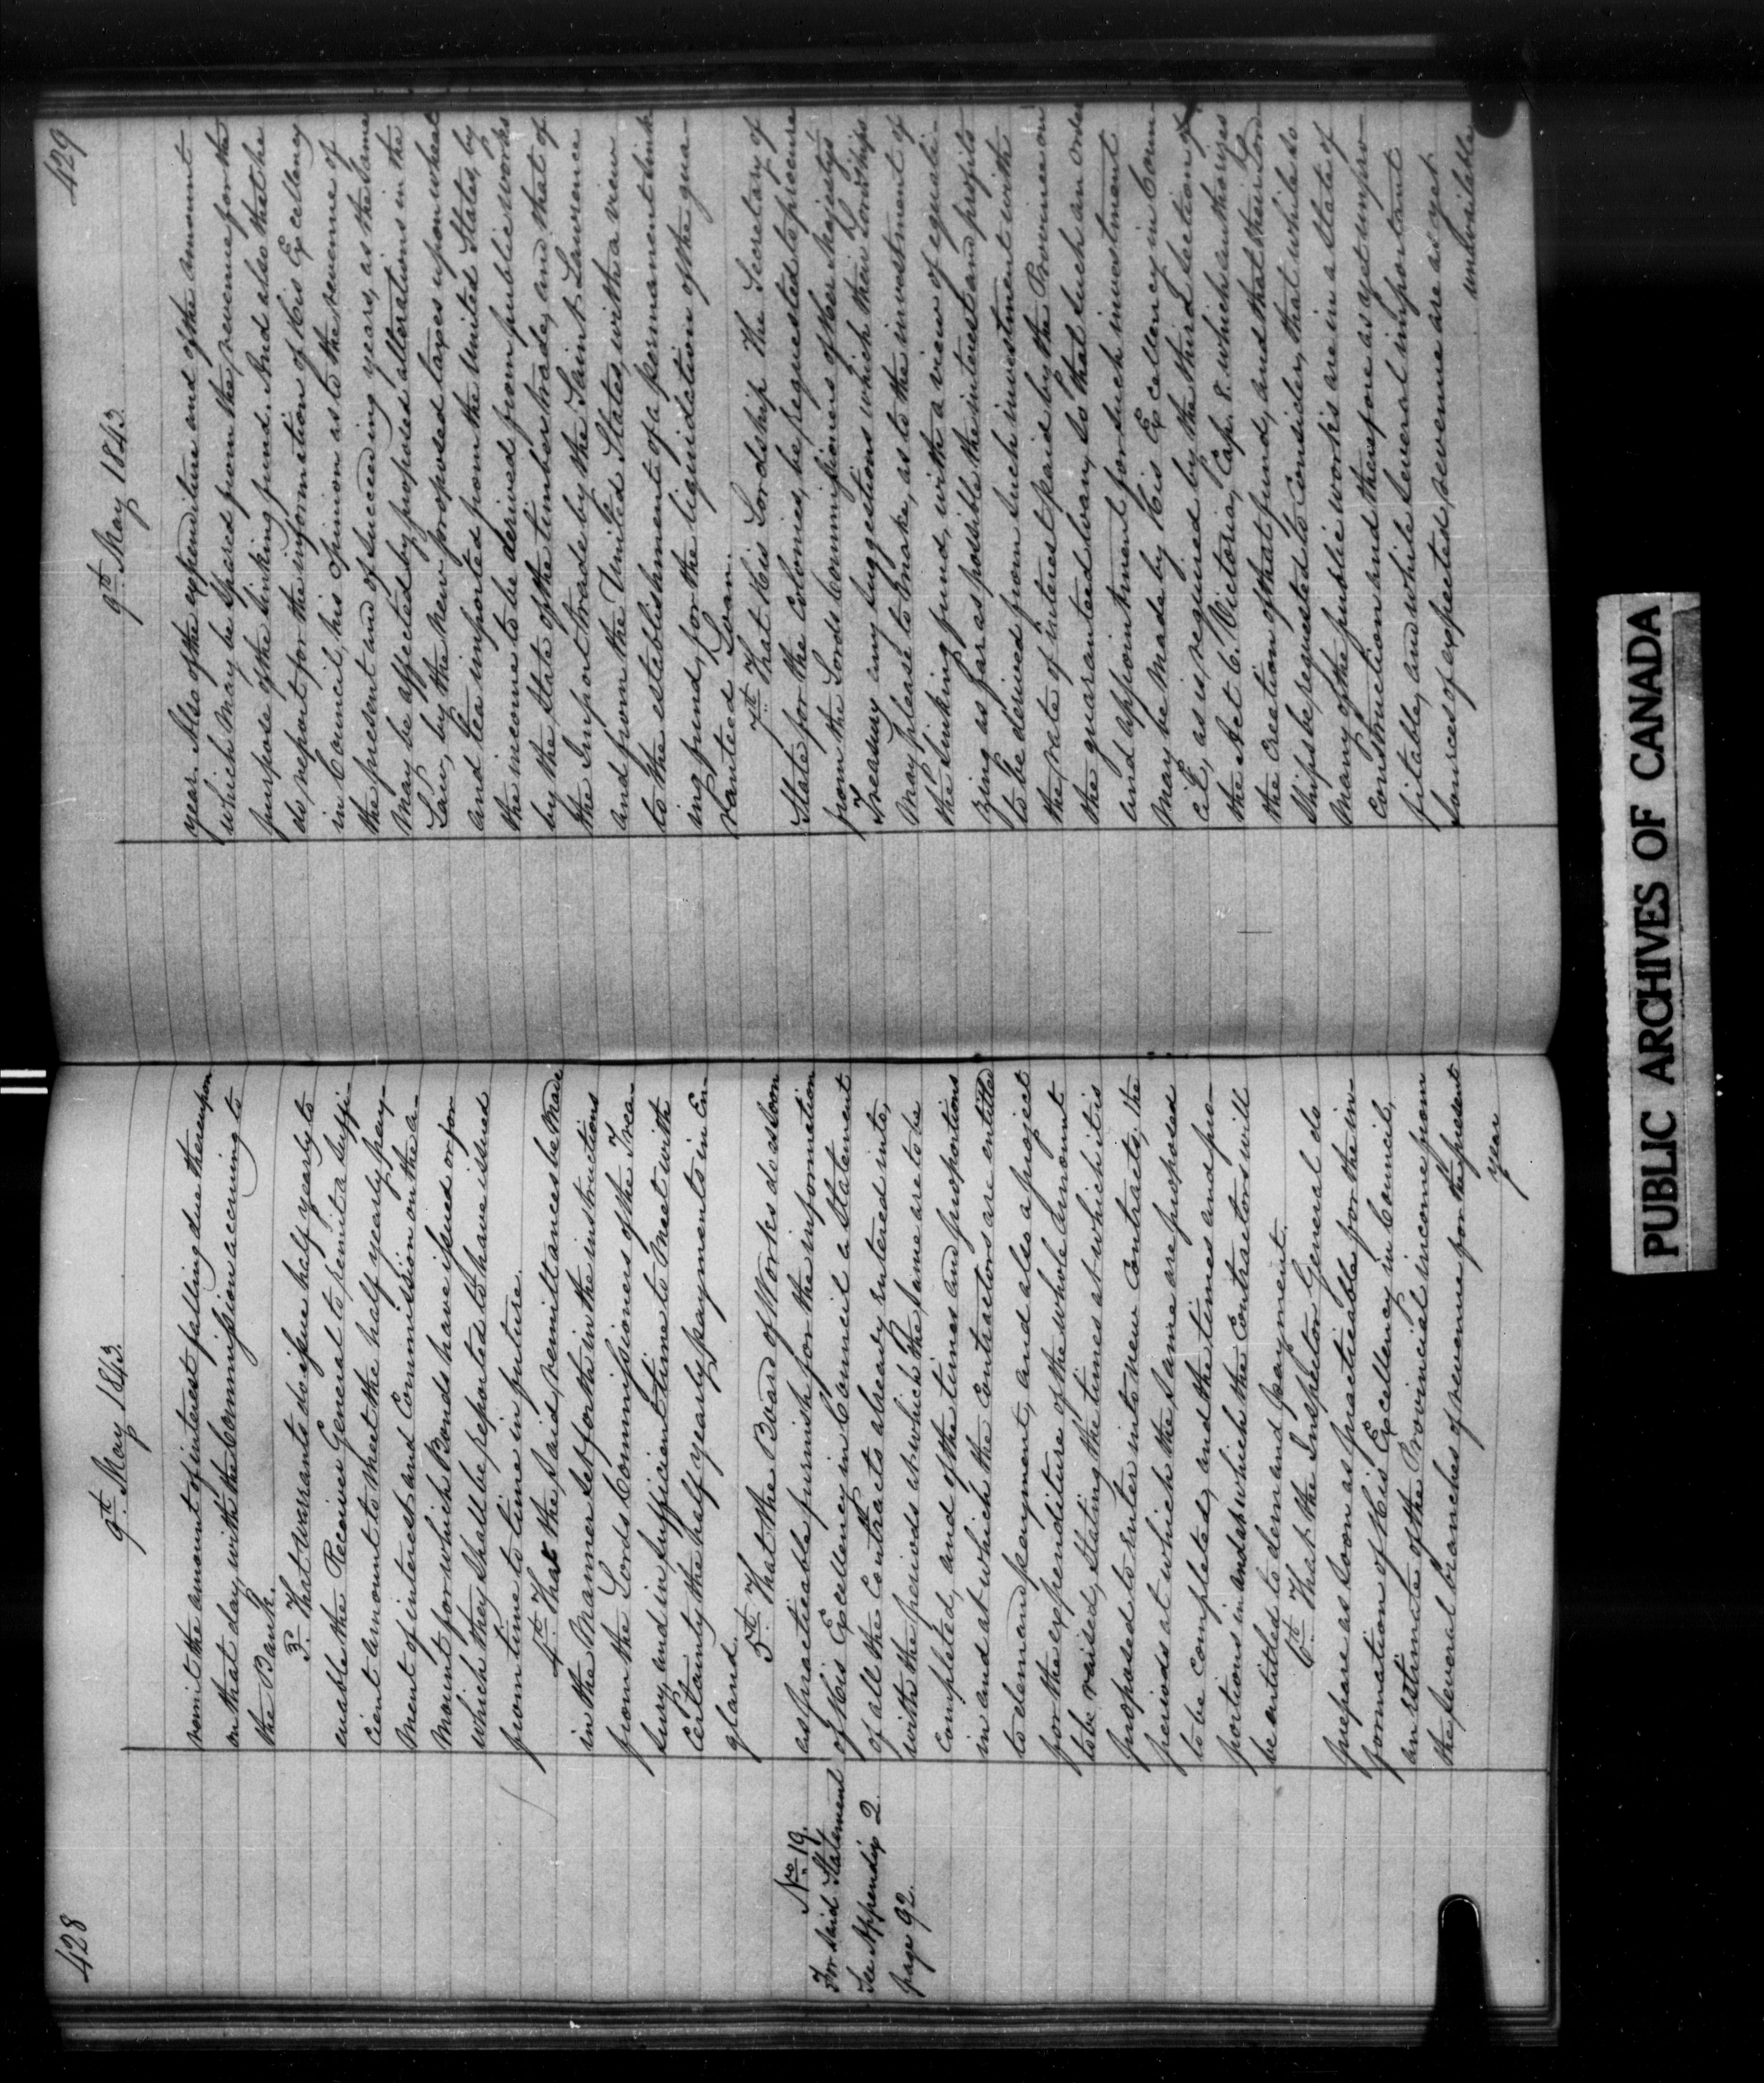 428
9th May 1843.
remit the amount of interest falling due thereupon
on that day with the Commission accruing to
the Bank.
3d That warrants do issue half yearly to
enable the Receiver General to remit a suffi-
cient amount to meet the half yearly pay-
ment of interest and Commission on the a-
mount for which Bonds have issued or for
which they shall be reported to have issued
from time to time in future.
4th That the said remittances be made
in the manner set forth in the instructions
from the Lords Commissioners of the Trea-
sury and in sufficient time to meet with
certainty the half yearly payments in En-
gland.
5th That the Board of Works do as soon
as practicable furnish for the information
of His Excellency in Council a Statement
of all the Contracts already entered into,
with the periods at which the same are to be
completed, and of the times and proportions
in and at which the Contractors are entitled
to demand payment, and also a project
for the expenditure of the whole amount
to be raised, stating the times at which it is
proposed to enter into new Contracts, the
periods at which the same are proposed
to be completed, and the times and pro-
portions in and at which the Contractors will
be entitled to demand payment.
6th That the Inspector General do
prepare as soon as practicable for the in-
formation of His Excellency in Council,
an estimate of the Provincial income from
the several branches of revenue for the present
year
No 19.
For said Statement
See Appendix 2
page 92.
429
9th May 1843.
year. Also of the expenditure and of the amount
which may be spared from the revenue for the
purpose of the sinking fund. And also that he
do report for the information of His Excellency
in Council, his opinion as to the revenue of
the present and of succeeding years, as the same
may be affected by proposed alterations in the
Law, by the new proposed taxes upon wheat
and tea imported from the United States, by
the income to be derived from public works
by the state of the timber trade, and that of
the Import trade by the Saint Lawrence
and from the United States, with a view
to the establishment of a permanent sink
ing fund, for the liquidation of the gua-
ranteed Loan.
7th That His Lordship the Secretary of
State for the Colonies, be requested to procure
from the Lords Commissioners of Her Majesty's
Treasury any suggestions which their Lordships
may please to make, as to the investment of
the sinking fund, with a view of equali-
zing as far as possible the interest and profits
to be derived from such investment with
the rate of interest paid by the Province on
the guaranteed loan, so that such an order
and appointment for such investment
may be made by His Excellency in Coun-
cil, as is required by the third section of
the Act 6. Victoria, Cap. 8. which authorizes
the creation of that fund, and that their Lord
ships be requested to consider, that while so
many of the public works are in a state of
construction and therefore as yet unpro-
fitable, and while several important
sources of expected revenue are as yet
unavailable
PUBLIC ARCHIVES OF CANADA